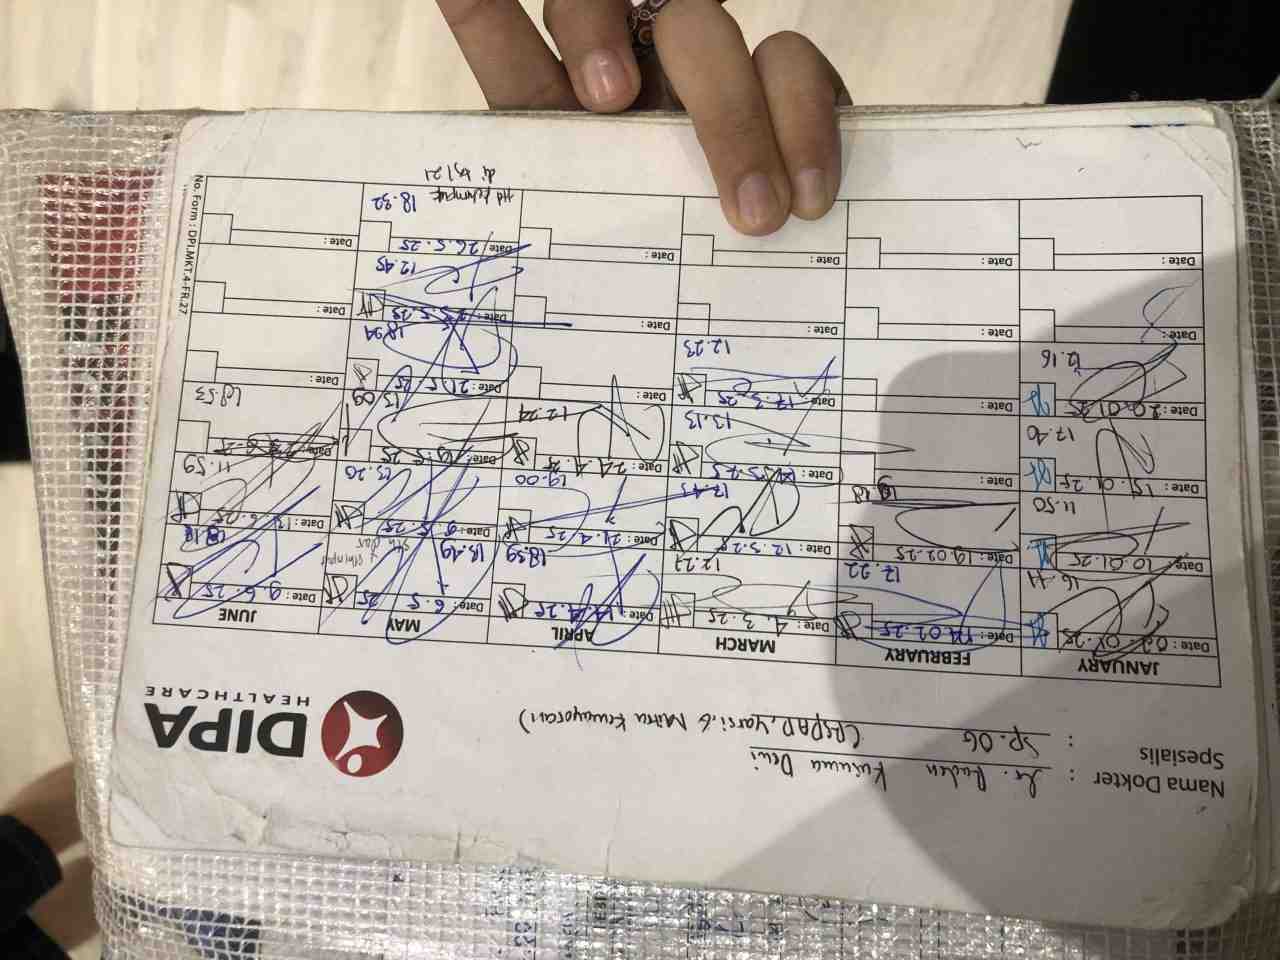 DIPA
HEALTHCARE
Nama Dokter : dr. Raden Kusuma Dewi
Spesialis : Sp. OG (RSPAD, Yarsi & Mitra Kemayoran)
JANUARY FEBRUARY MARCH APRIL MAY JUNE
Date : 02.01.25 Date : Date : 4.3.25 Date : 14.4.25 Date : 6.5.25 Date : 9.6.25
16.44 17.22 12.27 18.59 18.49
Date : 10.01.25 Date : 19.02.25 Date : 12.3.25 Date : 21.4.25 Date : 9.5.25 Date : 13.6.25
11.50 17.43 19.00 13.20 11.59
Date : 15.01.25 Date : Date : Date : 24.4.25 Date : Date :
17.40 13.13 12.24 13.09 18.53
Date : 20.01.25 Date : Date : 17.3.25 Date : Date : 21.5.25 Date :
12.16 12.23 18.94
Date : Date : Date : Date : Date : 25.5.25 Date :
12.45
Date : Date : Date : Date : Date : 26.5.25 Date :
18.32
di tgl 21
No. Form : DPI.MKT.4-FR.27